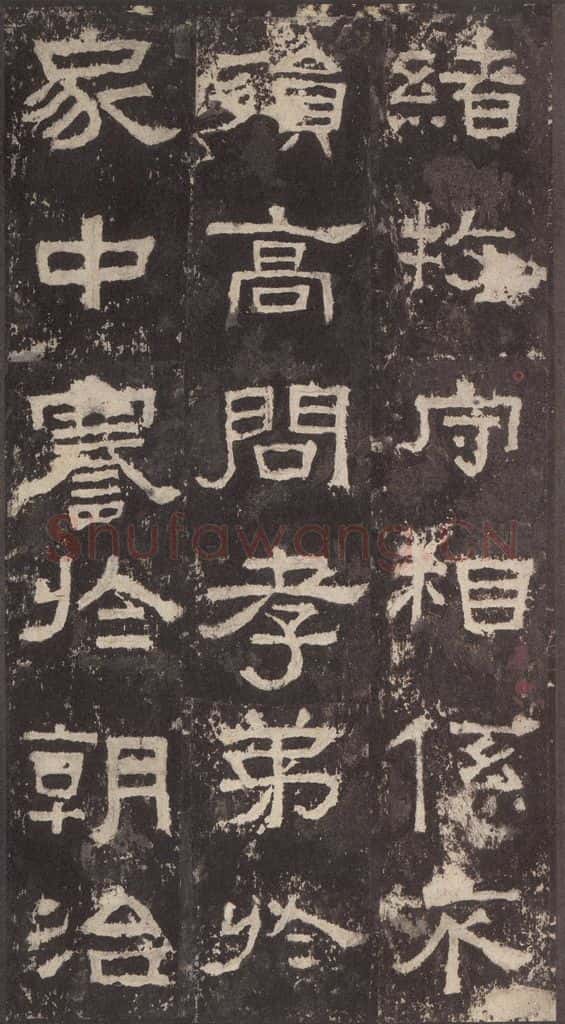 緒牧守相係不
殞高問孝弟於
家中謇於朝治
Shufawang.CN